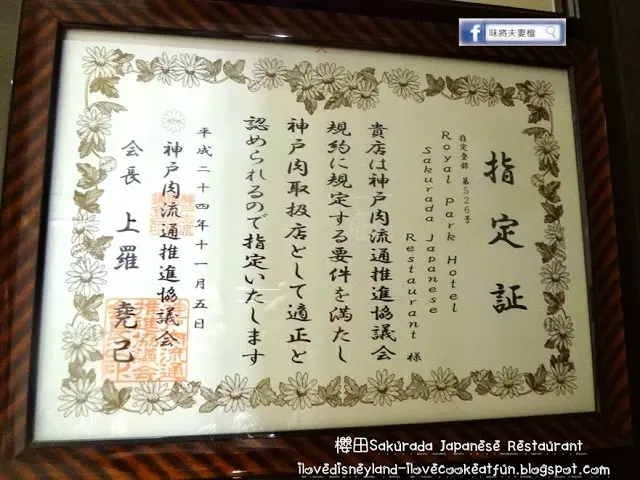 味將夫妻檔
指定証
指定登錄 第526号
Royal Park Hotel
Sakurada Japanese
Restaurant 様
貴店は神戸肉流通推進協議会
規約に規定する要件を満たし
神戸肉取扱店として適正と
認められるので指定いたします
平成二十四年十一月五日
神戸肉流通推進協議会
会長 上羅 堯己
櫻田Sakurada Japanese Restaurant
ilovedisneyland-ilovecookeatfun.blogspot.com